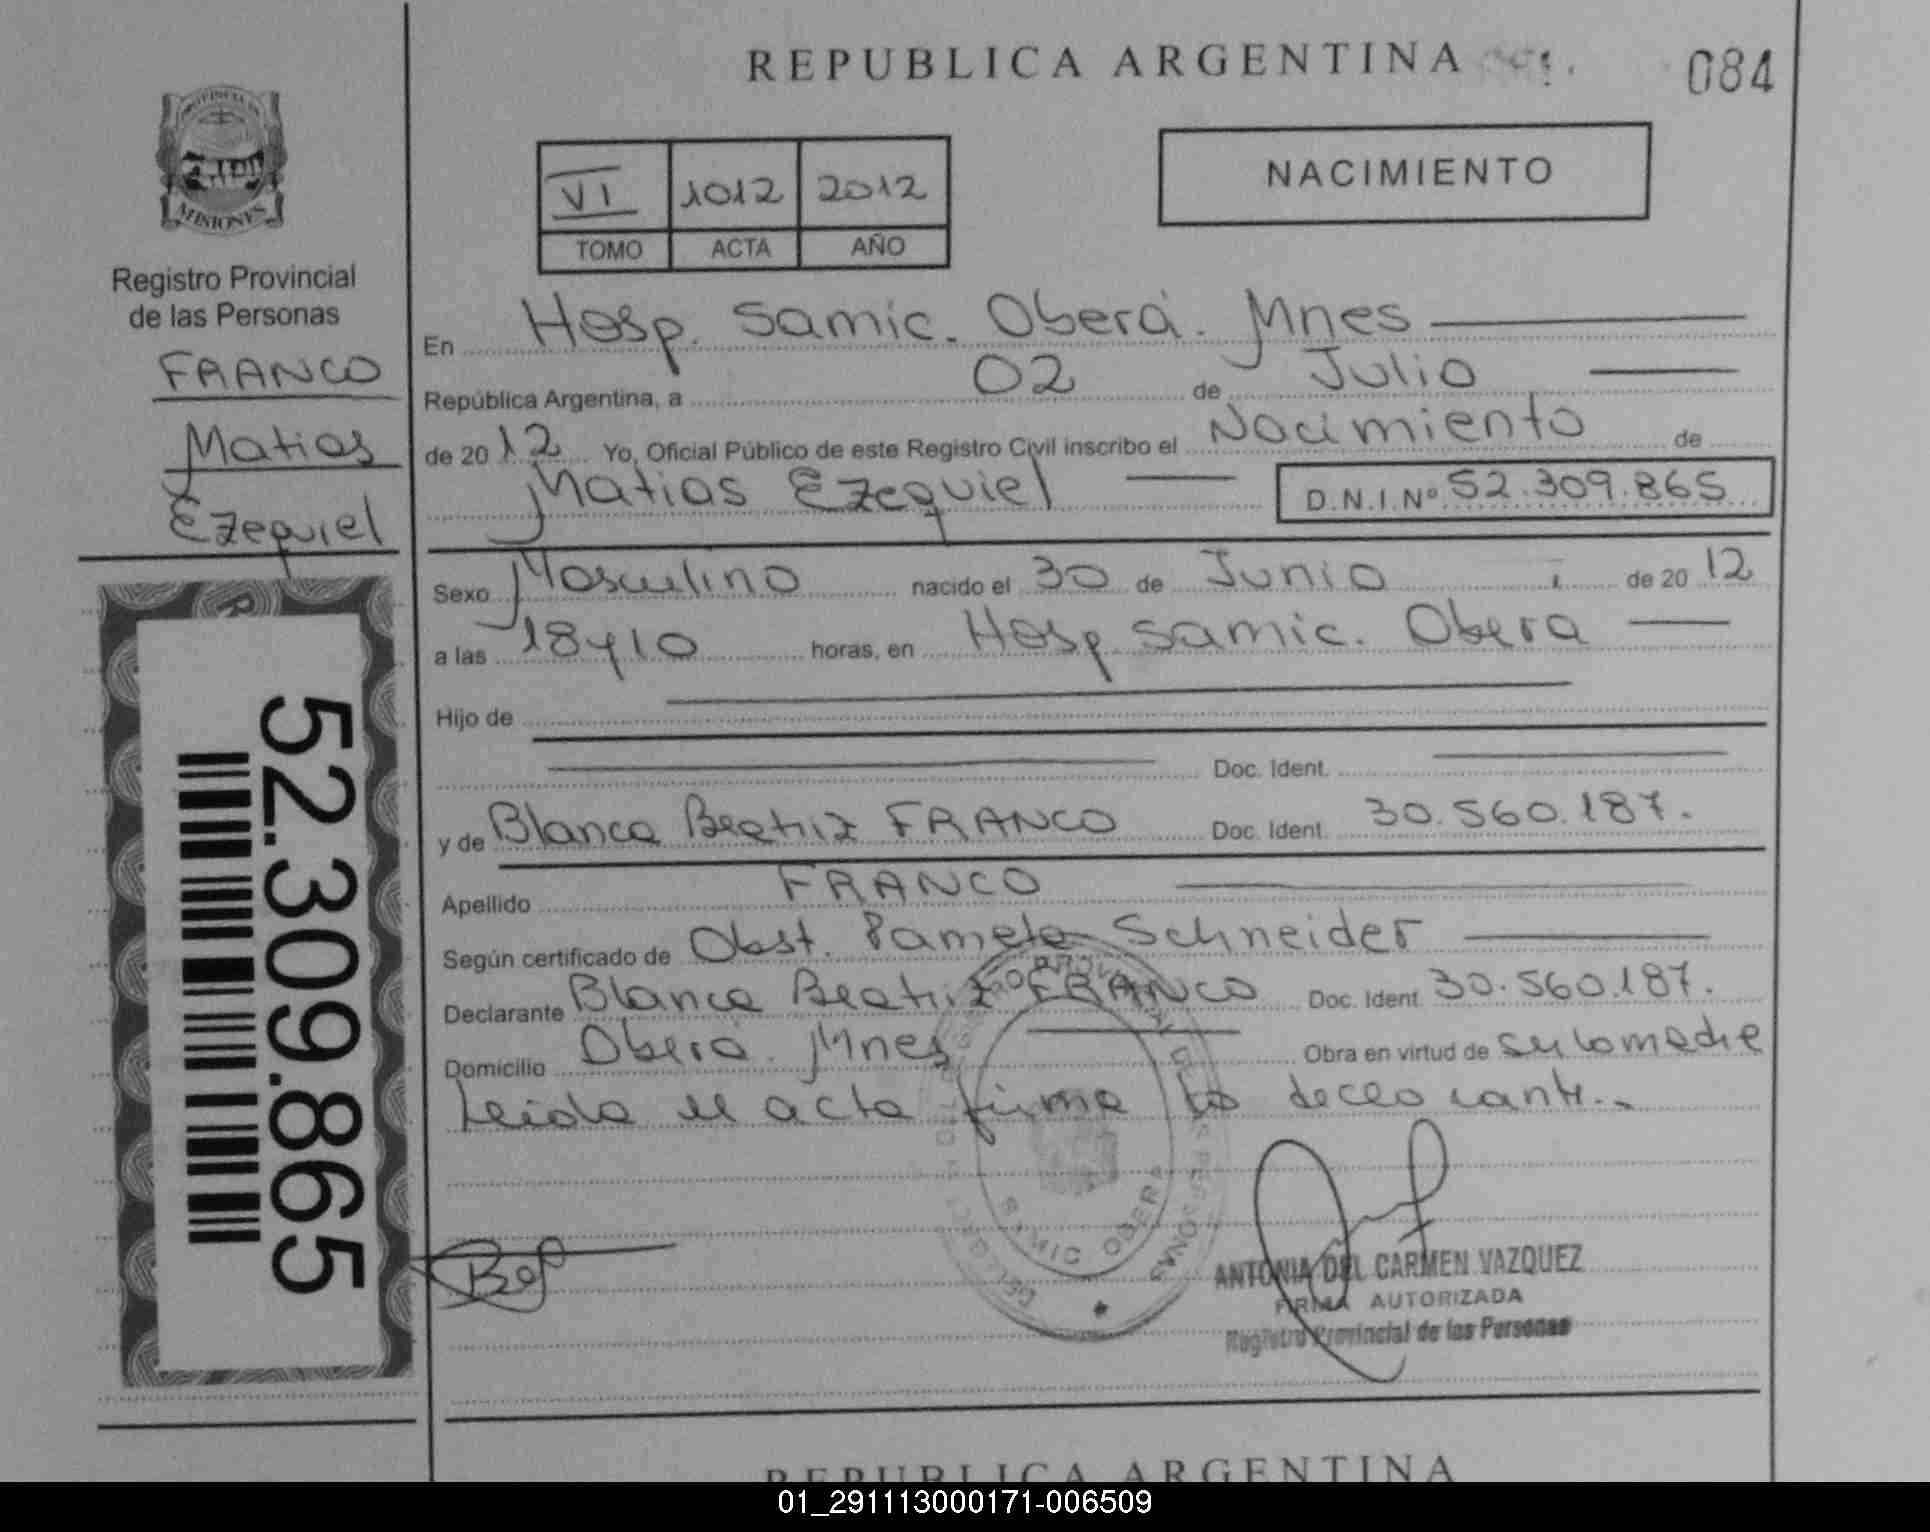 REPUBLICA ARGENTINA
084
PROVINCIA DE
MISIONES
Registro Provincial
de las Personas
FRANCO
Matias
Ezequiel
52.309.865
VI 1012 2012
TOMO ACTA AÑO
NACIMIENTO
En Hosp. Samic. Oberá. Mnes
República Argentina, a 02 de Julio
de 2012 Yo, Oficial Público de este Registro Civil inscribo el Nacimiento de
Matias Ezequiel D.N.I.Nº 52.309.865
Sexo Masculino nacido el 30 de Junio de 2012
a las 18y10 horas, en Hosp Samic. Obera
Hijo de
Doc. Ident.
y de Blanca Beatriz FRANCO Doc. Ident. 30.560.187.
Apellido FRANCO
Según certificado de Obst. Pamela Schneider
Declarante Blanca Beatriz FRANCO Doc. Ident. 30.560.187.
Domicilio Oberá. Mnes Obra en virtud de
Leida el acta firma la declarante.
SAMIC OBERA
ANTONIA DEL CARMEN VAZQUEZ
FIRMA AUTORIZADA
Registro Provincial de las Personas
REPUBLICA ARGENTINA
01_291113000171-006509